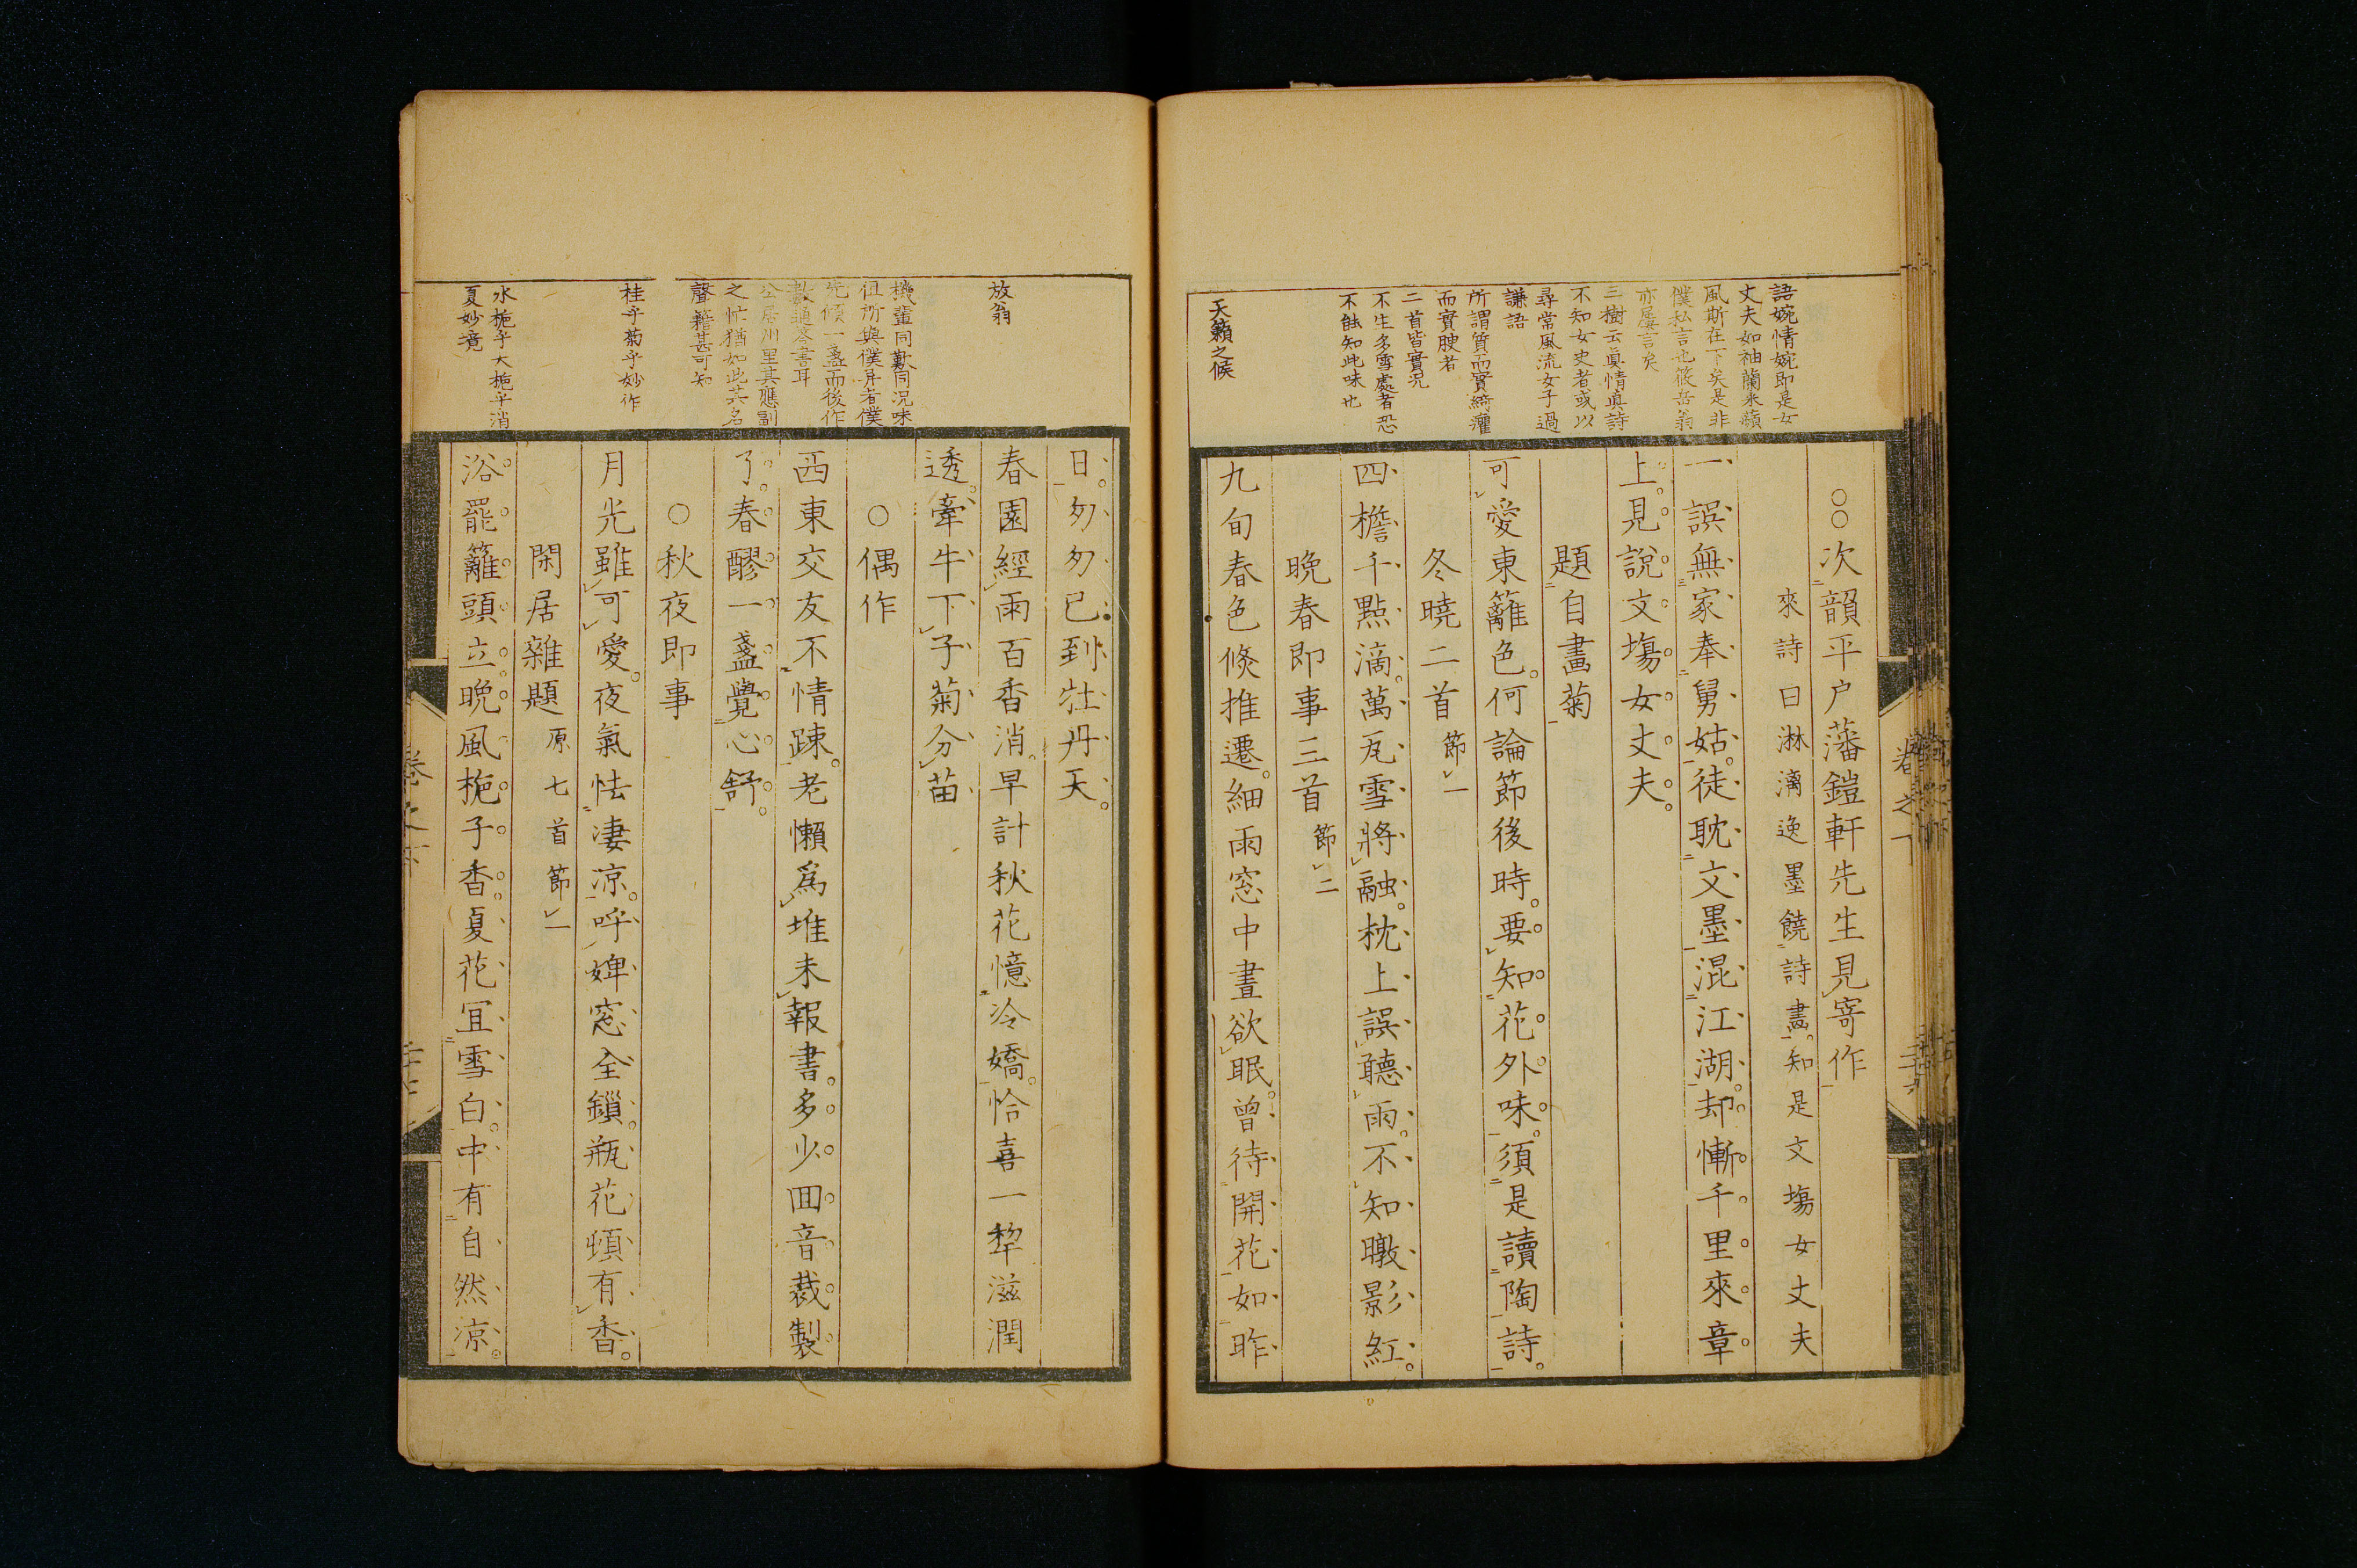 語婉情婉即是女
丈夫如袖蘭采蘋
風斯在下矣是非
僕私言也筱岳翁
亦屢言矣
三樹云眞情眞詩
不知女史者或以
尋常風流女子過
謙語
所謂質而實綺癯
而實腴者
二首皆實況
不生多雪處者恐
不蝕知此味也
天籟之候
○○次韻平户藩鎧軒先生見寄作
來詩曰淋漓逸墨饒詩畫知是文塲女丈夫
一誤無家奉舅姑徒耽文墨混江湖却慚千里來章
上見說文塲女丈夫
題自畫菊
可愛東籬色何論節後時要知花外味須是讀陶詩
冬曉二首節一
四檐千點滴萬瓦雪將融枕上誤聽雨不知暾影紅
晚春即事三首節二
九旬春色倐推遷細雨窓中晝欲眠曾待開花如昨
放翁
機輩同歎同況味
但所與僕异者僕
先傾一盞而後作
數通答書耳
公居州里其應副
之忙猶如此其名
聲籍甚可知
桂乎菊乎妙作
水梔乎大梔乎消
夏妙境
日匆匆已到牡丹天
春園經雨百香消早計秋花憶冷嬌恰喜一犂滋潤
透牽牛下子菊分苗
○偶作
西東交友不情踈老懶爲堆未報書多少回音裁製
了春醪一盞覺心舒
○秋夜即事
月光雖可愛夜氣怯凄凉呼婢窓全鎖瓶花頓有香
閑居雜題原七首節一
浴罷籬頭立晚風梔子香夏花宜雪白中有自然凉